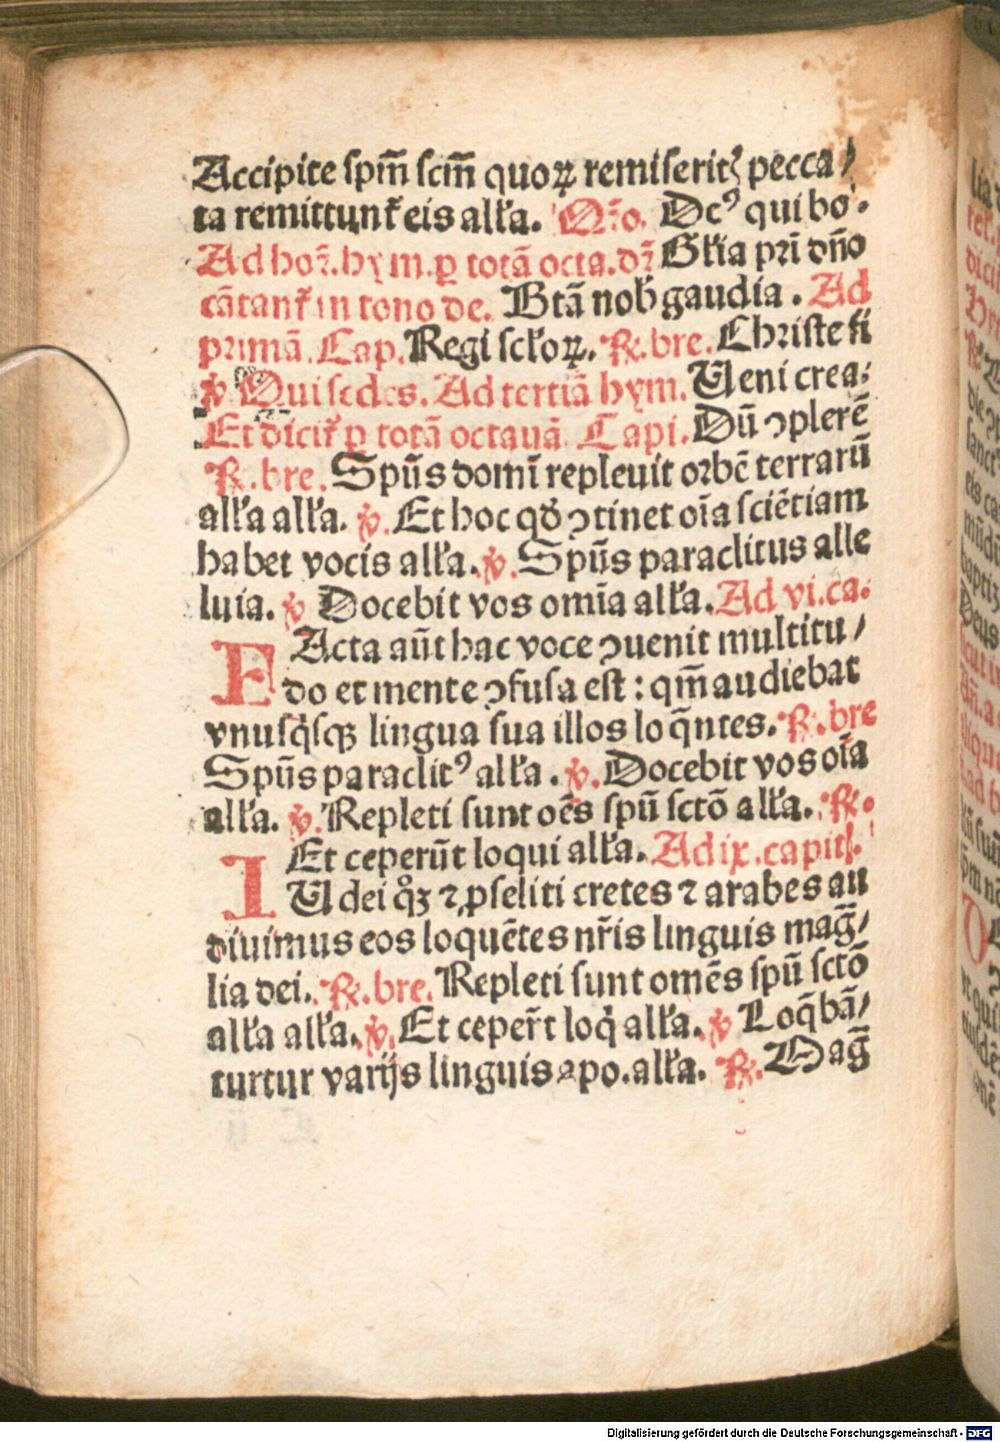 Accipite spm̄ scm̄ quoꝝ remiserit᷒ pecca/
ta remittunt᷑ eis all'a. Or̄o. Dc᷒ qui ho⸗
Ad hor̄. hym. ꝑ totā octa. dr̄ Gl'ia pri dn̄o
cātant᷑ in tono de. Btā nob̄ gaudia. Ad
primā. Cap. Regi scl'oꝝ. ℟. bre. Christe fi
℣ Qui sedes. Ad tertiā hym. Ueni crea⸗
Et dīcit᷑ ꝑ totā octauā Capi. Dū ↄplerē
℟. bre. Spūs domī repleuit orbē terrarū
all'a all'a. ℣. Et hoc qd̄ ↄtinet oīa sciētiam
habet vocis all'a. ℣. Spūs paraclitus alle
luia. ℣ Docebit vos omīa all'a. Ad vi. ca⸗
FActa aūt hac voce ↄuenit multitu/
do et mente ↄfusa est: qm̄ audiebat
vnusq̇sqꝫ lingua sua illos loq̄ntes. ℟. bre
Spūs paraclit᷒ all'a. ℣. Docebit vos oīa
all'a. ℣. Repleti sunt oēs spū sctō all'a. ℟.
Et ceperūt loqui all'a. Ad ix. capitl.
IUdei qͦꝫ ⁊ ꝓseliti cretes ⁊ arabes au
diuimus eos loquētes nr̄is linguis mag̃/
lia dei. ℟. bre. Repleti sunt omēs spū sctō
all'a all'a. ℣. Et ceper̄t loq̇ all'a. ℣ Loq̄bā/
turtur varijs linguis apo. all'a. ℟. Mag̃
Digitalisierung gefördert durch die Deutsche Forschungsgemeinschaft - DFG